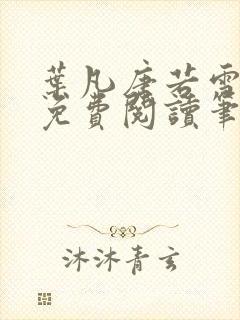 葉凡唐若雪
免費閱讀筆
沐沐青玄